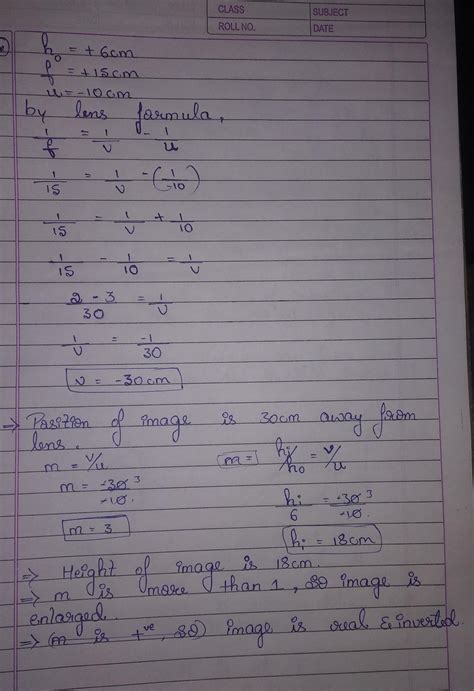 CLASS SUBJECT
ROLL NO. DATE
h₀ = +6cm
f = +15cm
u = -10cm
by lens formula,
1/f = 1/v - 1/u
1/15 = 1/v - (1/-10)
1/15 = 1/v + 1/10
1/15 - 1/10 = 1/v
2-3/30 = 1/v
1/v = -1/30
v = -30cm
→ Position of image is 30cm away from
lens.
m = v/u m = hi/h₀ = v/u
m = -30 3/-10. hi/6 = -30 3/-10.
m = 3 hi = 18cm
⇒ Height of image is 18cm.
⇒ m is more than 1, so image is
enlarged.
⇒ (m is +ve, so) image is real & inverted.